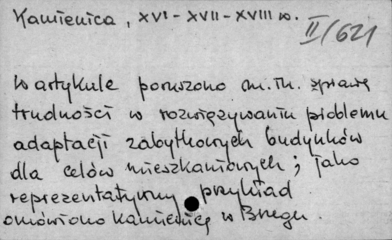 Kamienica, XVI-XVII-XVIII w.
II/621
W artykule poruszono m.in. sprawę
trudności w rozwiązywaniu problemu
adaptacji zabytkowych budynków
dla celów mieszkaniowych; jako
reprezentatywny przykład
omówiono kamienicę w Brzegu.